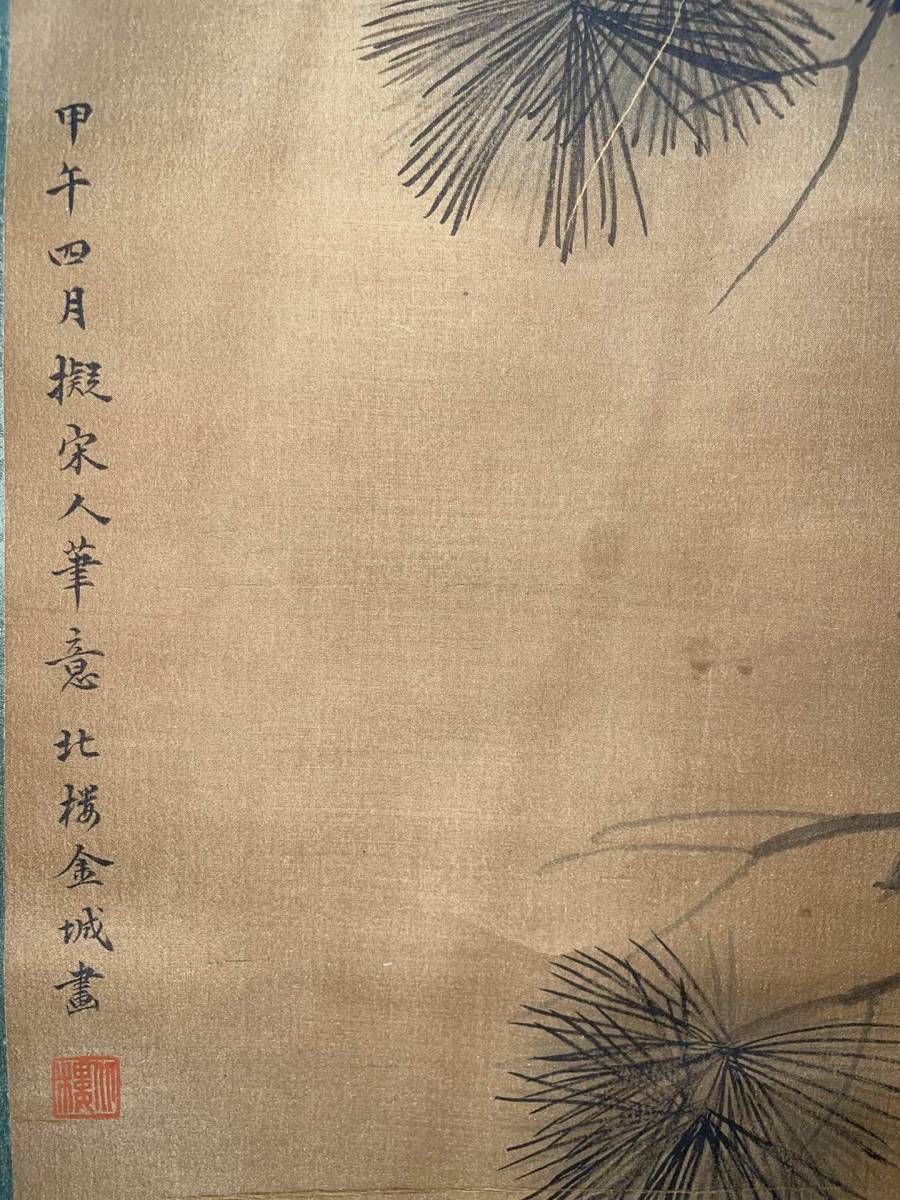 甲午四月擬宋人筆意北楼金城畫
北樓